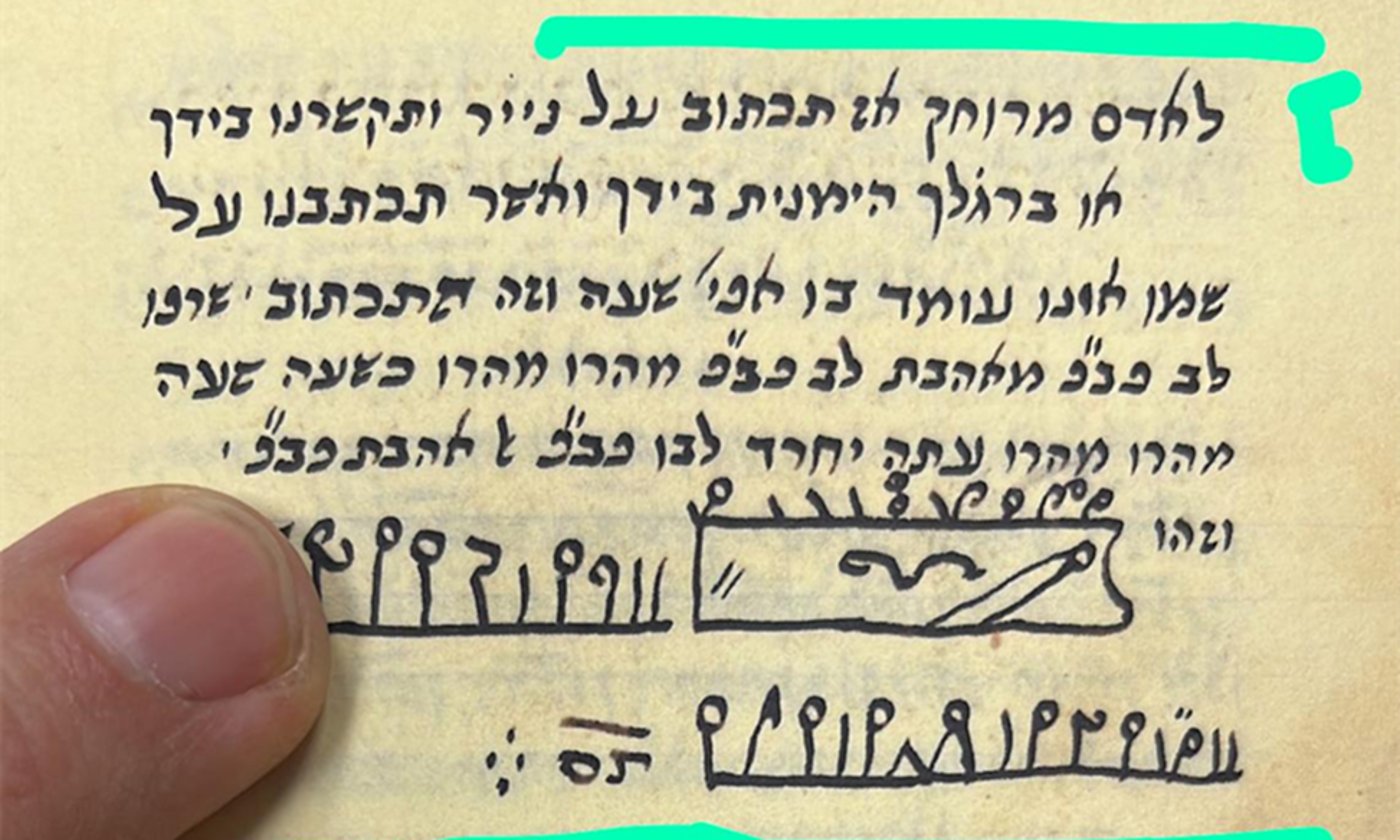 לאדם מרוחק אז תכתוב על נייר ותקשרנו בידך
או ברגלך הימנית בידך ואשר תכתבנו על
שמן אזנו עומד בו אפי' שעה וזה שתכתוב ישרפו
לב פב"פ מאהבת לב פב"פ מהרו מהרו כשעה שעה
מהרו מהרו עתה יחרד לבו פב"פ אהבת פב"פ
וזהו
תם